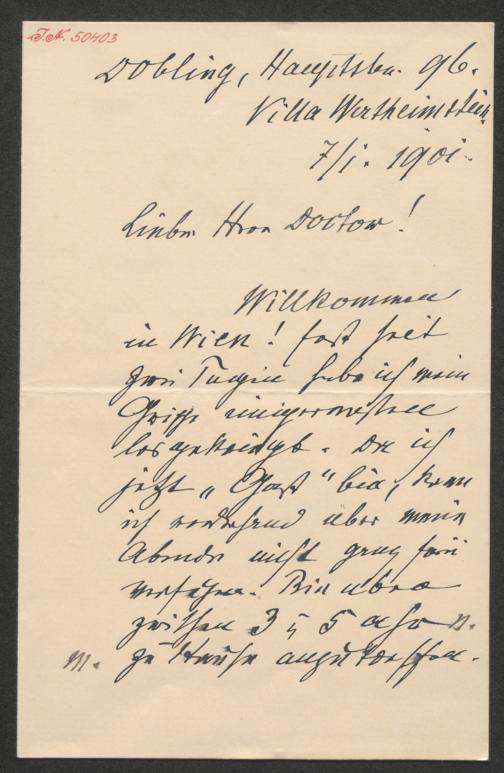 I.N. 50403
Döbling, Hauptstr. 96.
Villa Wertheimstein
7/I. 1901.
Lieber Herr Doctor!
Willkommen
in Wien! Erst seit
zwei Tagen habe ich mein
Grippe einigermaßen
losgekriegt. Da ich
jetzt „Gast“ bin, kann
ich vorderhand über meine
Abende nicht ganz frei
verfügen. Bin aber
zwischen 3 u 5 Uhr n.
m. zu Hause anzutreffen.